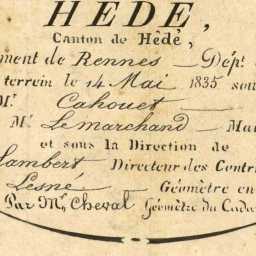 HÉDÉ,
Canton de Hédé,
ment de Rennes — Dépt
terrein le 14 Mai 1835 sou
Mr. Cahouet —
Mr. Lemarchand — Ma
et sous la Direction de
Lambert Directeur des Contri
Lesné — Géomètre en
Par Mr. Cheval Géomètre du Cada